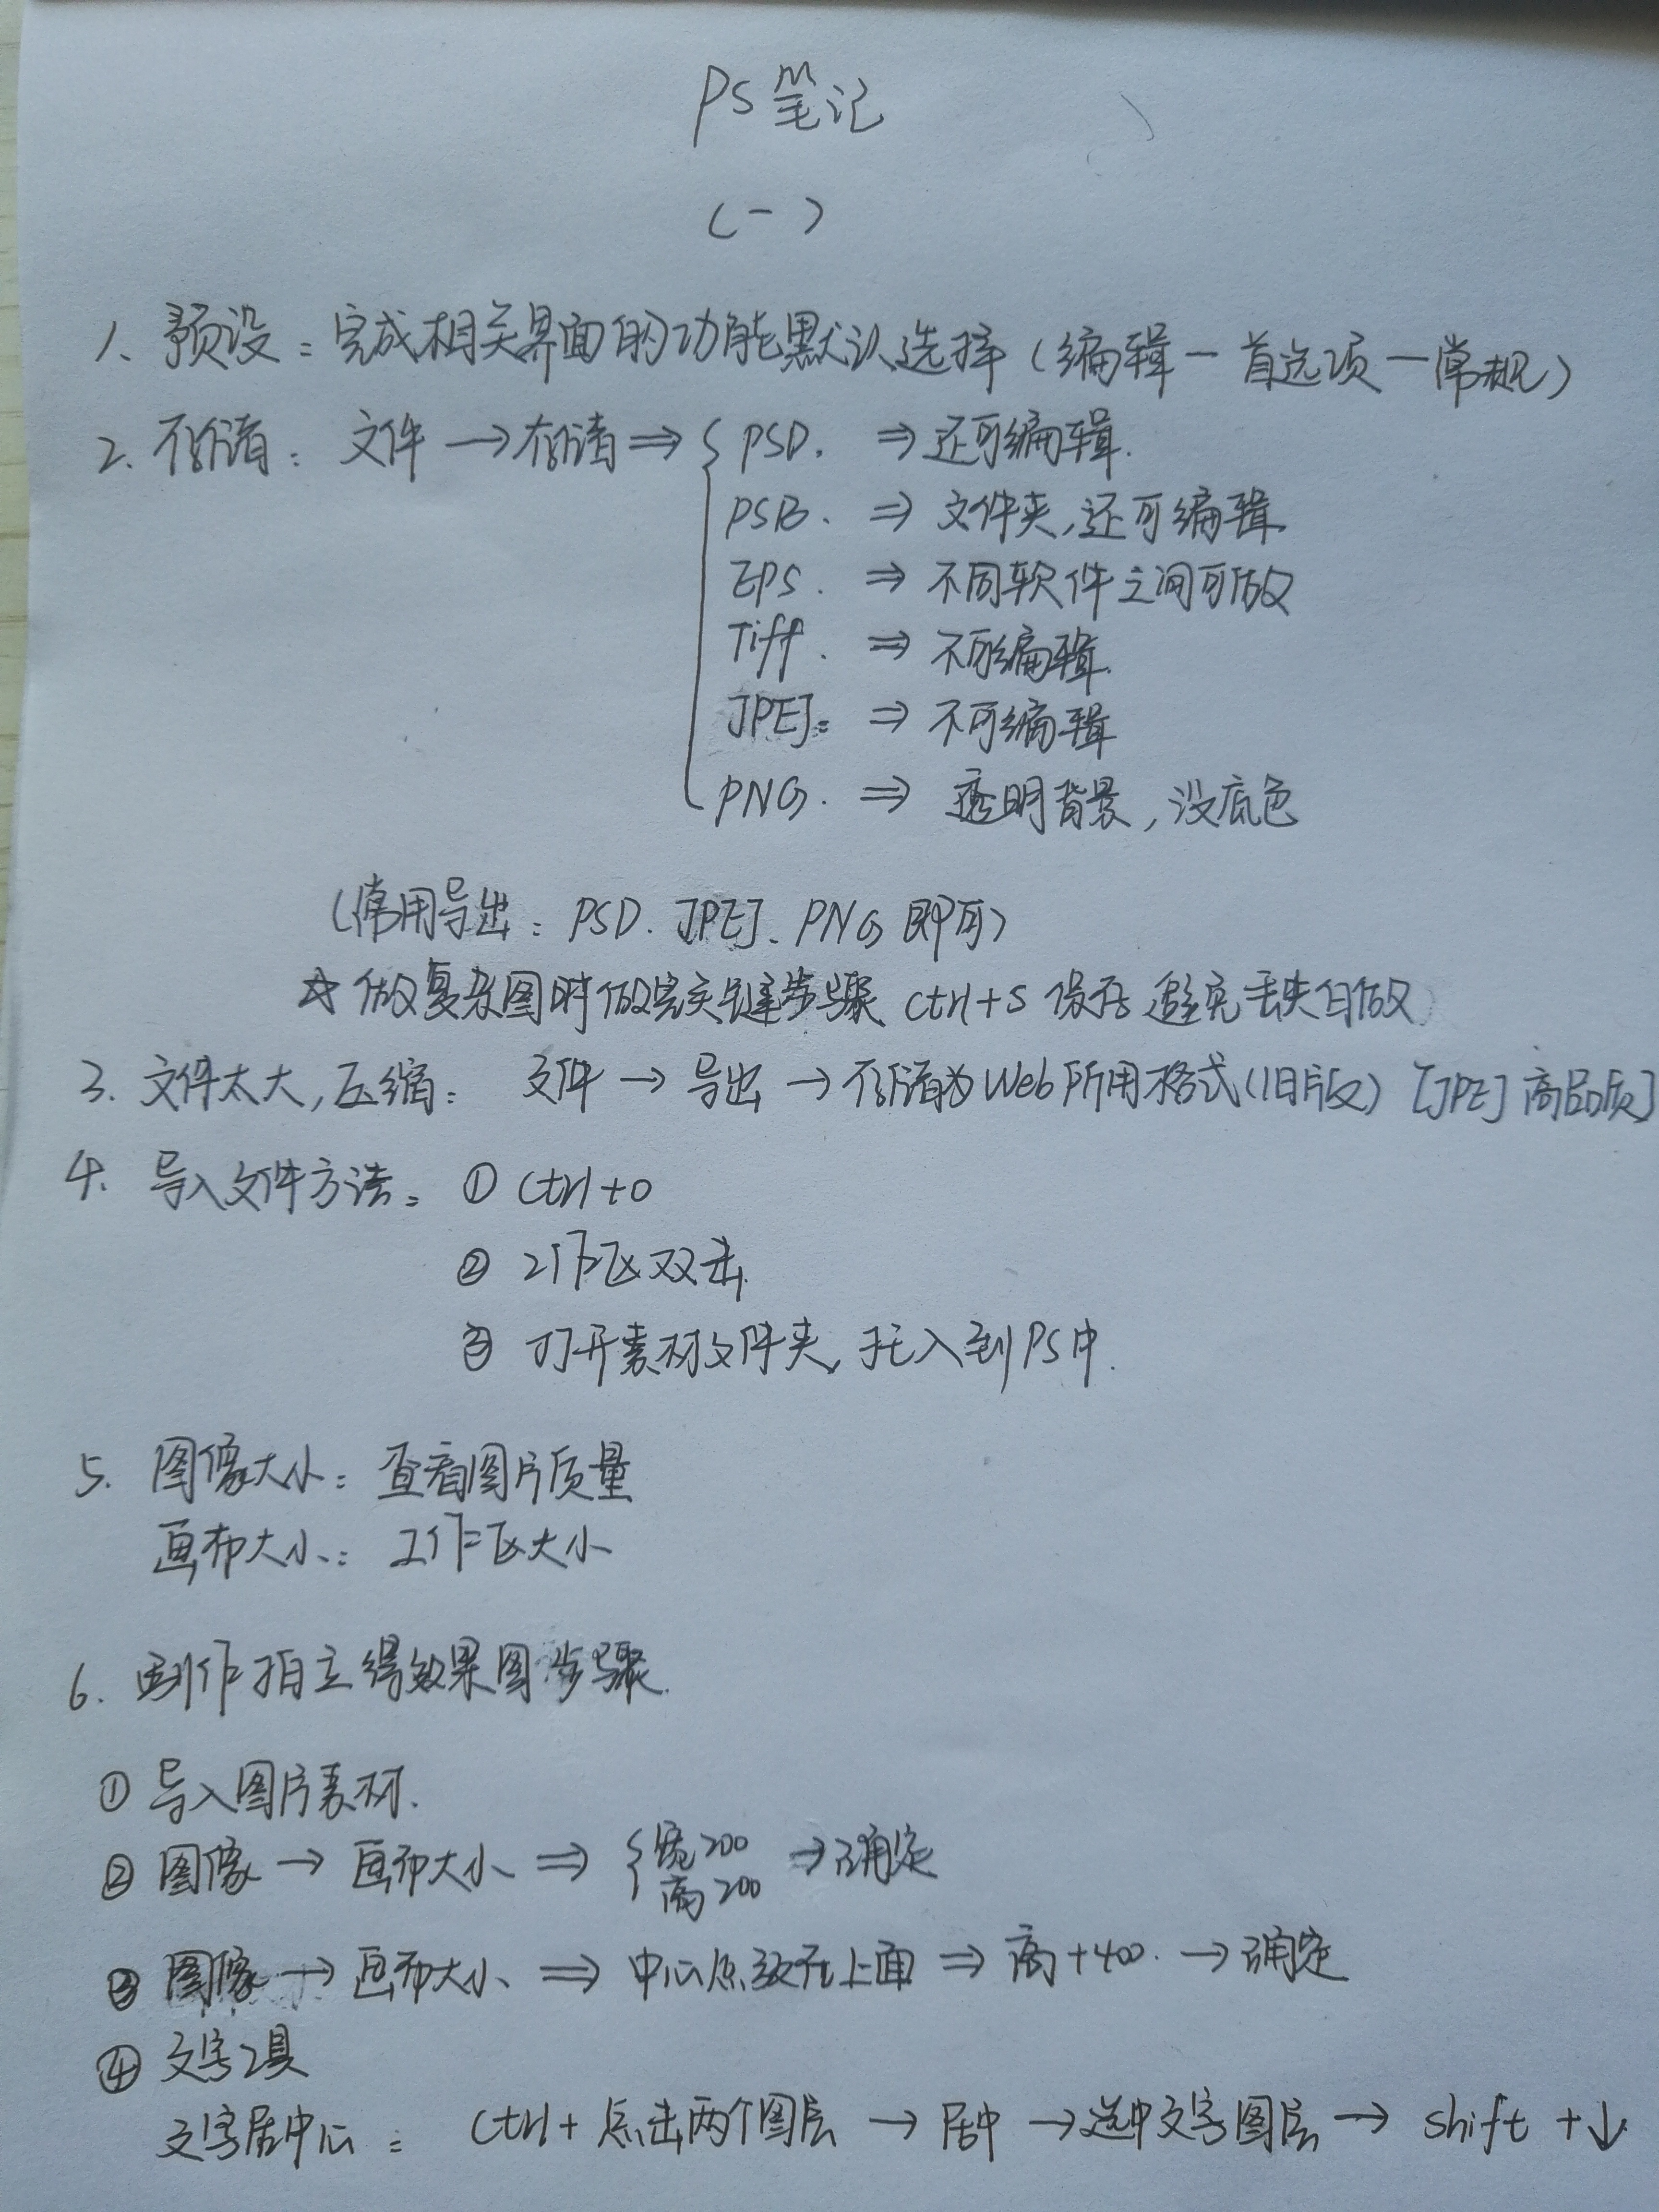 PS笔记
(一)
1、预设：完成相关界面的功能默认选择（编辑一首选项一常规）
2. 存储：文件→存储⇒{PSD. ⇒还可编辑.
PSB. ⇒ 文件夹,还可编辑.
EPS. ⇒ 不同软件之间可做
Tiff. ⇒ 不可编辑.
JPEJ: ⇒ 不可编辑
PNG. ⇒ 透明背景,没底色
(常用导出：PSD. JPEJ、PNG即可)
☆做复杂图时做完关键步骤 ctrl+S 保存 避免丢失白做
3. 文件太大,压缩：文件→导出→存储为Web所用格式(旧版) [JPEJ高品质]
4. 导入文件方法：① Ctrl+O
② 工作区双击.
③ 打开素材文件夹,托入到PS中.
5. 图像大小：查看图片质量
画布大小：工作区大小
6. 制作拍立得效果图步骤.
① 导入图片素材.
② 图像→画布大小⇒{宽200 高200 →确定
③ 图像→画布大小⇒中心点放在上面⇒高+400. →确定
④ 文字工具
文字居中心：Ctrl+点击两个图层→居中→选中文字图层→shift+↓